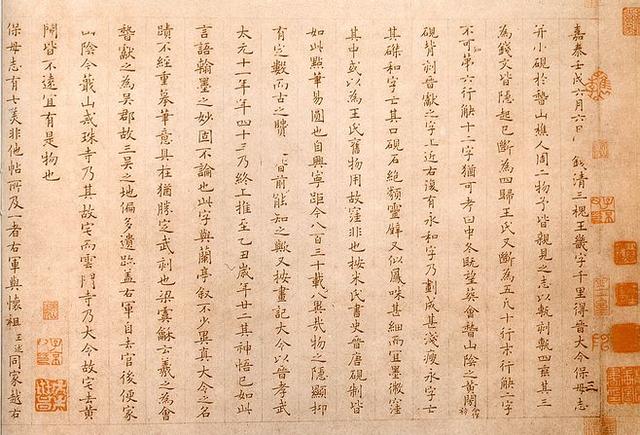 嘉泰壬戌六月六日錢清三槐王畿字千里得晉大令保母志
并小硯於稽山樵人周二物予皆親見之志以甎刻甎四垂其三
為錢文皆隱起已斷為四歸王氏又斷為五凡十行末行缺二字
不可知第六行缺十二字猶可考曰中冬既望葬會稽山陰之黃閍
硯背刻晉獻之字上近右復有永和字乃劃成甚淺瘦永字亡
其磔和字亡其口硯石絕類靈壁又似鳳味甚細而宜墨微窪
其中或以為王氏舊物用故窪非也按米氏書史晉唐硯制皆
如此點筆易圓也自興寧距今八百三十載八異哉物之隱顯抑
有定數而古之賢 皆前能知之歟又按畫記大令以晉孝武
太元十一年年四十三乃終上推至乙丑歲年廿二其神悟已如此
言語翰墨之妙固不論也此字與蘭亭叙不少異真大令之名
蹟不經重摹筆意具在猶勝定武刻也梁虞龢云羲之為會
稽獻之為吳郡故三吳之地偏多遺跡蓋右軍自去官後便家
山陰今蕺山戒珠寺乃其故宅而雲門寺乃大令故宅去黃
閍皆不遠宜有是物也
保母志有七美非他帖所及一者右軍與懷祖王述同家越右
三